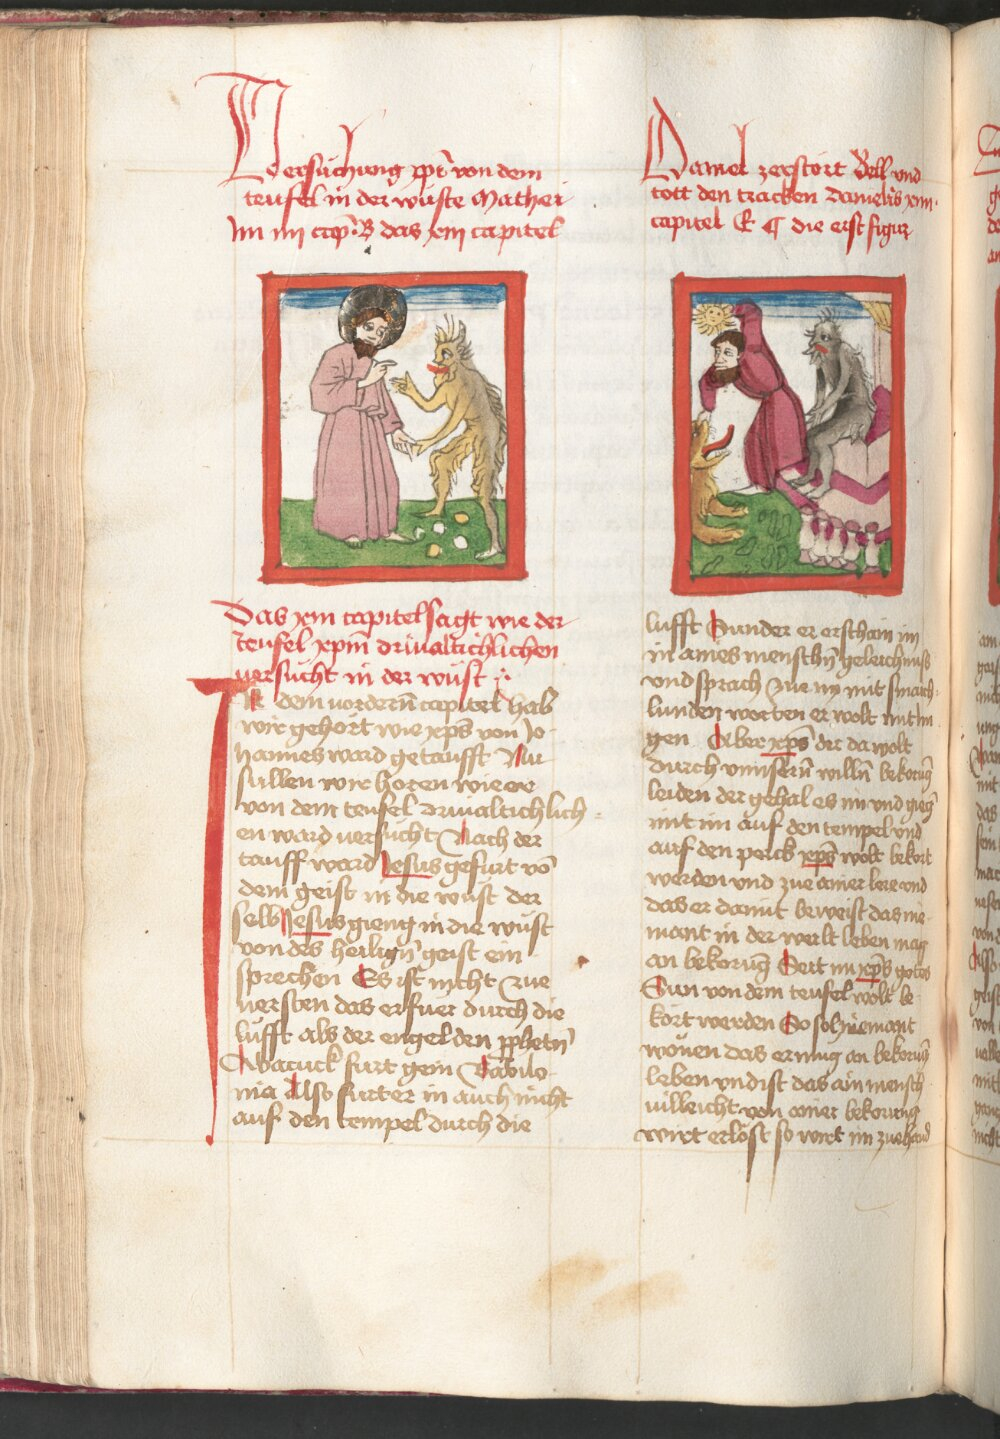 Versuchung xpi von dem
teufel in der wüste Mathei
im iiii cap. B das xiii capitel
Das xiii capitel sagt wie der
teufel xpm drivaltichlichen
versucht in der wüst
In dem vordern capitel hab
wir gehort wie xps von Jo
hannes ward getaufft Nu
süllen wir horen wie er
von dem teufel drivaltichlich
en ward versucht Nach der
tauff ward Jesus gefurt vo
dem geist in die wüst der
selb Jesus gieng in die wüst
von des heilign geist ein
sprechen Es ist nicht zue
versten das er fuer durch die
lufft als der engel den pphetn
Abacuck furt gein Babilo
nia Also furt er in auch nicht
auf den tempel durch die
Daniel zerstort Bell und
tott den tracken Danielis xiiii
capitel E G die erst figur
lufft Sunder er erschain im
in aines menschn geleichnuß
vnd sprach zue im mit smaich
lunden worten er wolt mit im
gen Aber xps der da wolt
durch vnnsern willn bekorug
leiden der gehal es im vnd gieg
mit im auf den tempel vnd
auf den perck xps wolt bekort
werden vnd zue ainer lere vnd
das er damit beweist das nie
mant in der werlt leben mag
an bekorug Seit nu xps gotes
Sun von dem teufel wolt be
kort werden So sol niemant
wönen das er mug an bekorug
leben vnd ist das ain mensch
villeicht von ainer bekorung
wirt erlöst so wirt im zuehand